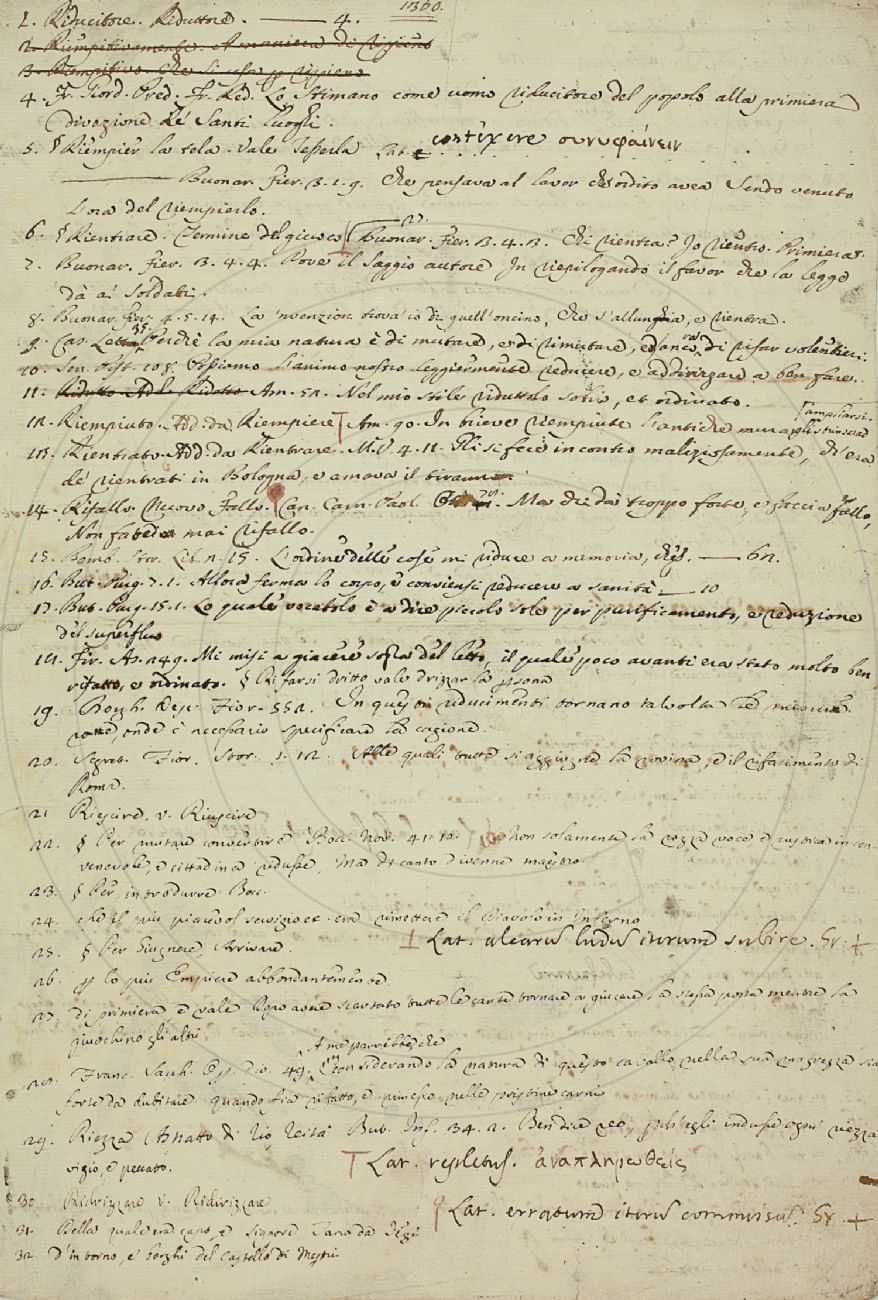 1300.
1. Riducitore. Riduttore. ——— 4.
2. Riempitivamente. A maniera di ripieno
3. Riempitivo. Che si usa p ripieno
4. Fr. Giord. Pred. Fr. Red. Lo Stimano come uomo riducitore del popolo alla primiera
Divozione de' Santi luoghi.
5. § Riempier la tela. Vale Tesserla Lat. contexere συνυφαίνειν
——— Buonar. Fier. 3. 1. 9. Che pensava al lavor ch'ordito avea Sendo venuto
L'ora del riempierlo.
6. § Rientrare. Termine del giuoco Buonar. Fier. 3. 4. 3. Chi rientra? Io rientro. Primiera.
7. Buonar. Fier. 3. 4. 4. Dove il Saggio autore In riepilogando il favor che la legge
dà a' Soldati.
8. Buonar. Fier. 4. 5. 14. La 'nvenzion trova' io di quell'oncino, Che s'allunghia, e rientra.
9. Car. Lett. 35. Perchè la mia natura è di mutare, e di rimutare, ed anco di rifar volentieri.
10. Sen. Pist. 108. Possiamo l'animo nostro leggiermente reducere, e addirizzare a ben fare.
11. Ridutto Add. Ridotto Am. 52. Nel mio stile ridottolo sotto, et ordinato.
12. Riempiuto. Add. da Riempiere Am. 90. In brieve riempiute l'antiche mura
13. Rientrato. Add. da Rientrare. M. V. 4. 11. Gli si fece incontro maliziosamente, ch'era
de' rientrati in Bologna, e amava il tiranno.
14. Rifallo. Nuovo fallo. Can. Carn. Paol. 71. Ma chi dà troppo forte, e faccia fallo,
Non fatede mai rifallo.
15. Bemb. Stor. Lib. 2. 15. L'ordine delle cose mi riduce a memoria, ch'egl. — 62.
16. But. Purg. 7. 1. Allora ferma lo corpo, e conviensi reducere a sanità — 10
17. But. Purg. 15. 1. Lo quale vocabolo è a dire piccolo sole per purificamento, e reduzione
del superfluo
18. Fir. As. 249. Mi misi a giacere sopra del letto, il quale poco avanti era stato molto ben
rifatto, e ordinato. § Rifarsi dritto vale drizzar la psona
19. Borgh. Desc. Fior. 552. In questi riducimenti tornano talvolta le misure
rotte, onde è necessario specificare la cagione.
20. Segret. Fior. Stor. 1. 12. Alle quali tutte si aggiugne la rovina, e il rifacimento di
Roma.
21 Riescire. v. Riuscire
22. § Per mutare convertire Bocc. Nov. 41. 10. Non solamente la rozza voce, e rustica in con-
venevole, e cittadina ridusse, Ma di canto divenne maestro.
23. § Per introdurre Boc.
24. che il più piacevol servigio et. era rimettere il Diavolo in Inferno
Lat. alearus ludus iterum subire. Gr. +
25. § Per Giugnere, Arrivare.
26. p lo più Empiere abbondantemente.
27. di primiera, e vale Dopo avere scartato tutte le carte tornare a giocare la stessa posta mentre la
giuochino gli altri
28. Franc. Sacch. Op. Div. 49. A me parrebbe, che considerando la natura di questo cavallo nella sua magrezza sia
forte da dubitare quando fia rifatto, e rimesso nelle pristine carni
29. Riezza Astratto di rio, reità But. Inf. 34. 2. Ben dice reo, pch'egli indusse ogni riezza
vizio, e peccato.
Lat. repletus. ἀναπληρωθείς
30. Ridirizzare v. Ridirizzare
Lat. erratum iterus commissus. Gr. +
31. Della quale era capo, e Signore
32. D'intorno, e borghi del Castello di Mestri